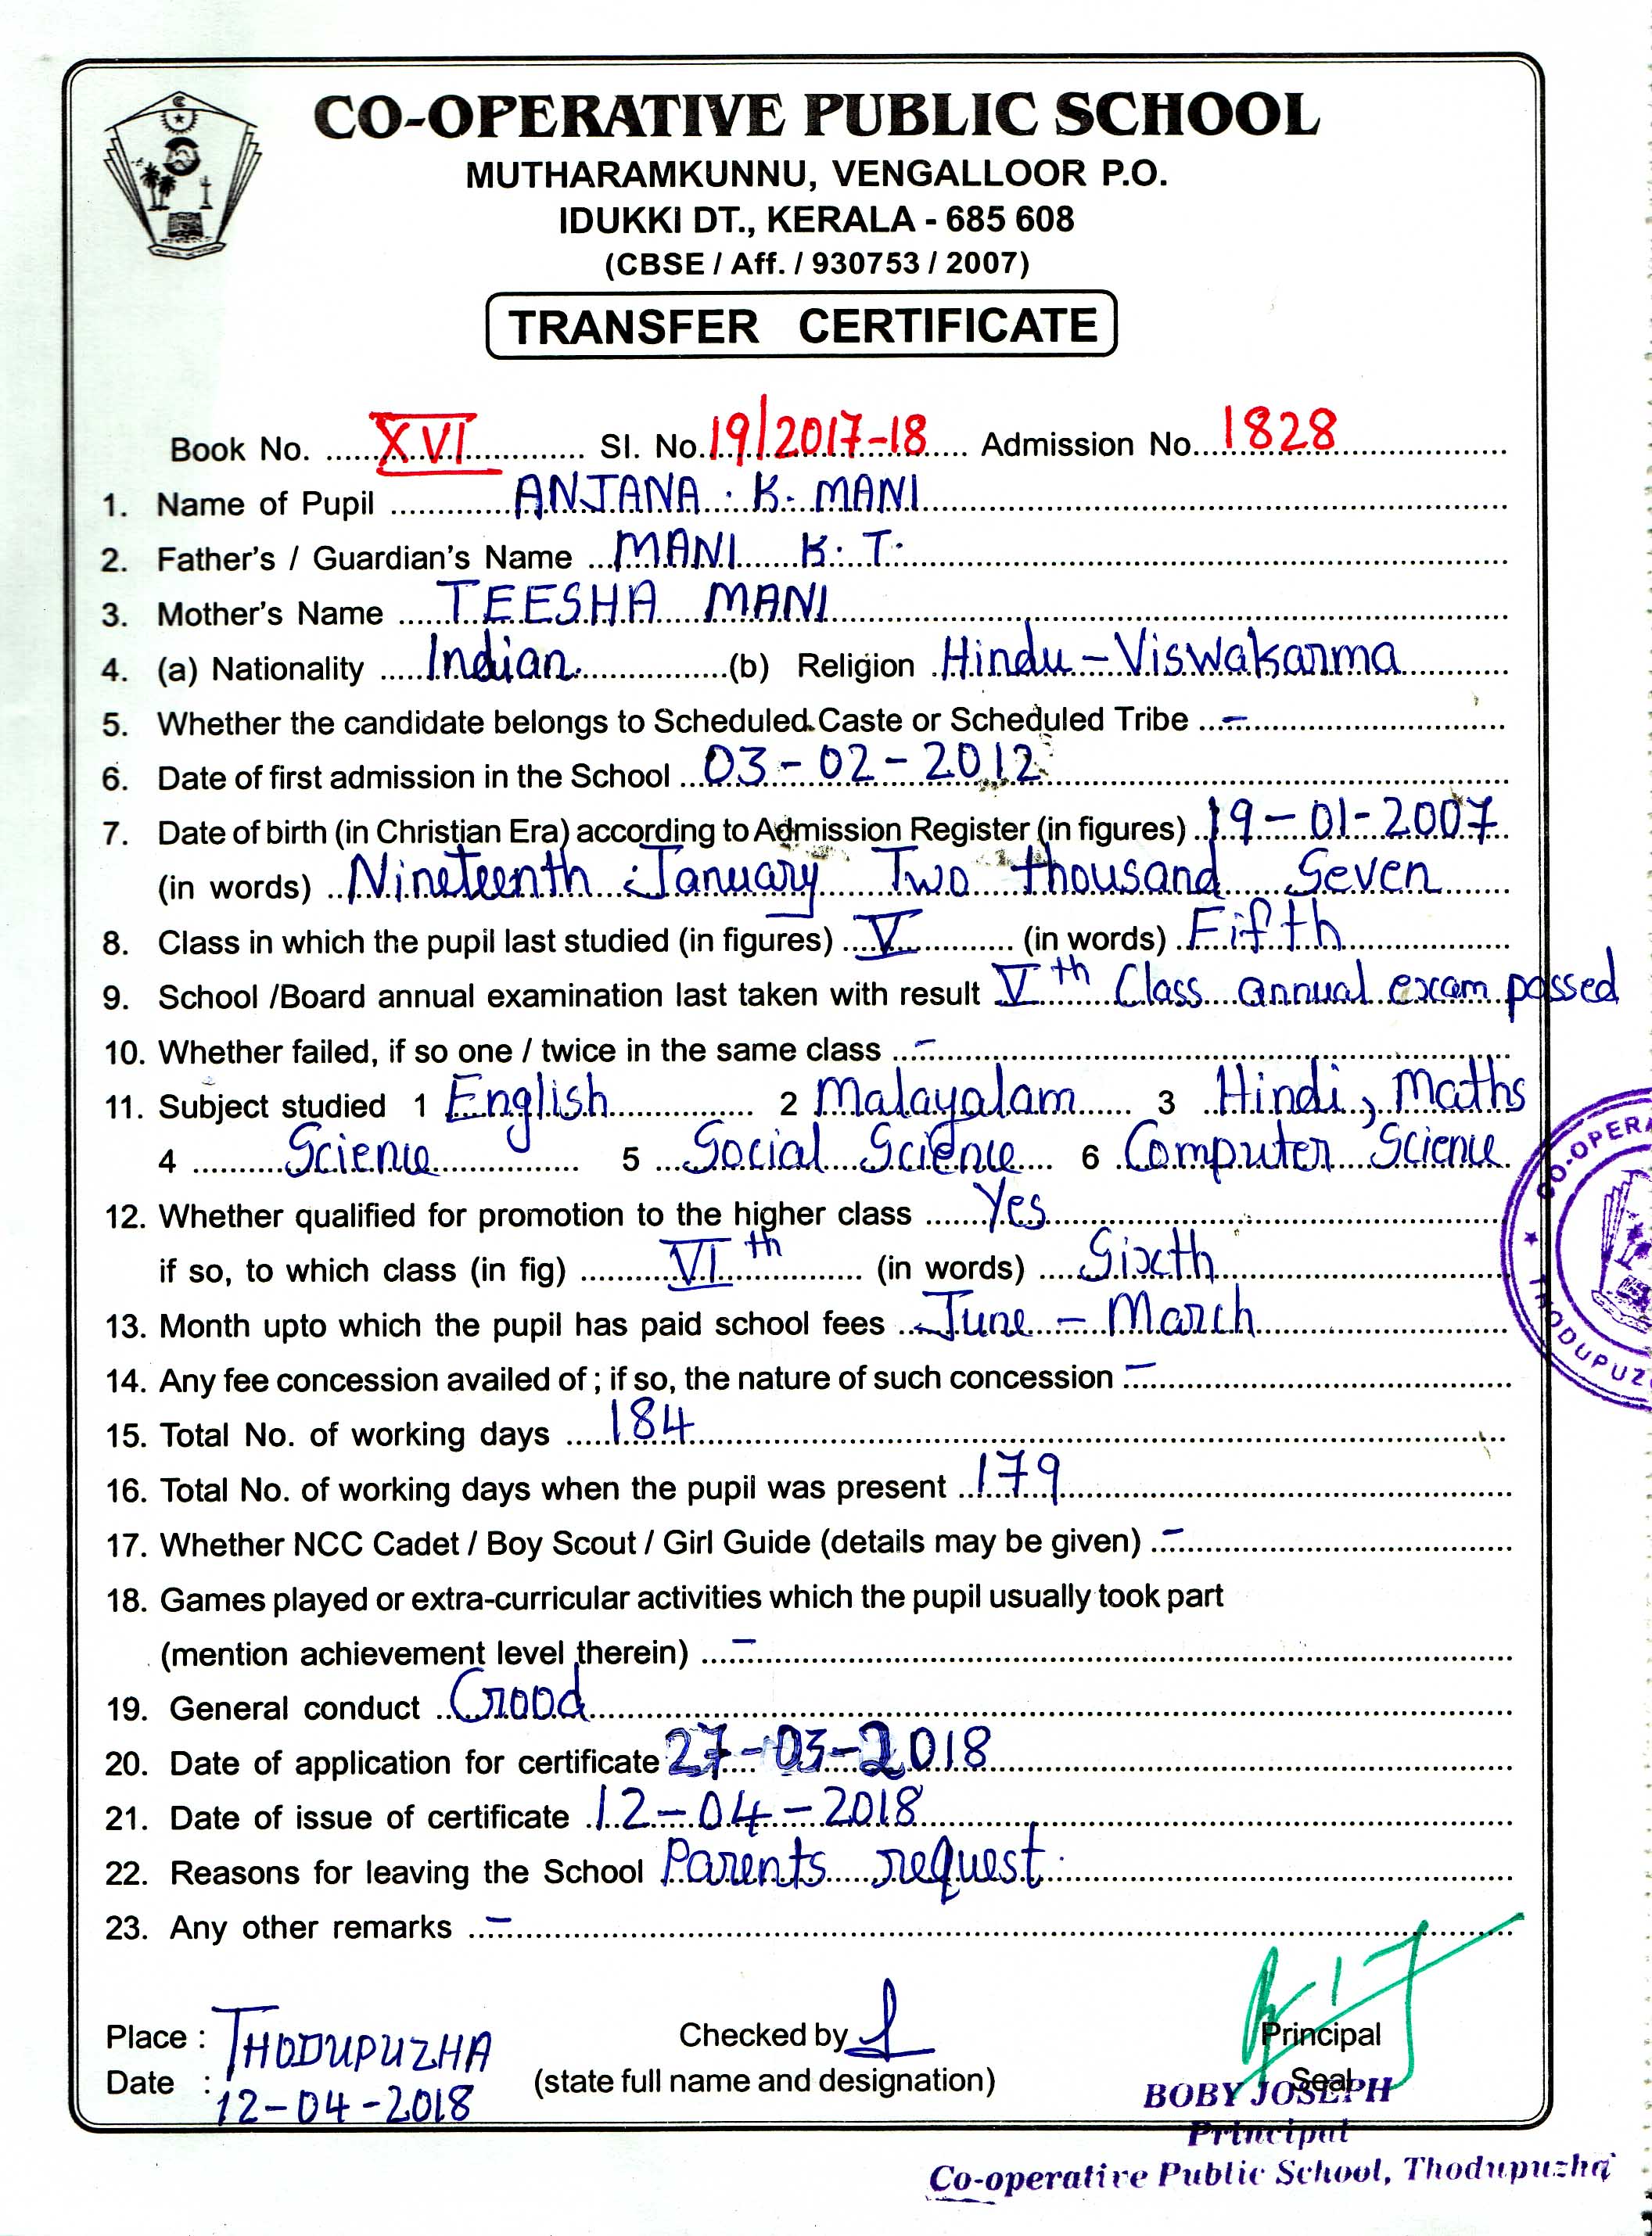 CO-OPERATIVE PUBLIC SCHOOL
MUTHARAMKUNNU, VENGALLOOR P.O.
IDUKKI DT., KERALA - 685 608
(CBSE / Aff. / 930753 / 2007)
TRANSFER CERTIFICATE
Book No. XVI Sl. No. 19/2017-18 Admission No. 1828
1. Name of Pupil ANJANA . K. MANI
2. Father's / Guardian's Name MANI K. T.
3. Mother's Name TEESHA MANI
4. (a) Nationality Indian. (b) Religion Hindu - Viswakarma
5. Whether the candidate belongs to Scheduled Caste or Scheduled Tribe -
6. Date of first admission in the School 03-02-2012
7. Date of birth (in Christian Era) according to Admission Register (in figures) 19-01-2007
(in words) Nineteenth January Two thousand Seven
8. Class in which the pupil last studied (in figures) V (in words) Fifth
9. School /Board annual examination last taken with result Vth Class annual exam passed
10. Whether failed, if so one / twice in the same class -
11. Subject studied 1 English 2 Malayalam 3 Hindi, Maths
4 Science 5 Social Science 6 Computer Science
12. Whether qualified for promotion to the higher class Yes
if so, to which class (in fig) VIth (in words) Sixth
13. Month upto which the pupil has paid school fees June - March
14. Any fee concession availed of ; if so, the nature of such concession -
15. Total No. of working days 184
16. Total No. of working days when the pupil was present 179
17. Whether NCC Cadet / Boy Scout / Girl Guide (details may be given) -
18. Games played or extra-curricular activities which the pupil usually took part
(mention achievement level therein) -
19. General conduct Good
20. Date of application for certificate 27-03-2018
21. Date of issue of certificate 12-04-2018
22. Reasons for leaving the School Parents request.
23. Any other remarks -
Place : THODUPUZHA Checked by Principal
Date : 12-04-2018 (state full name and designation) Seal
BOBY JOSEPH
Principal
Co-operative Public School, Thodupuzha
CO-OPERA
THODUPUZ